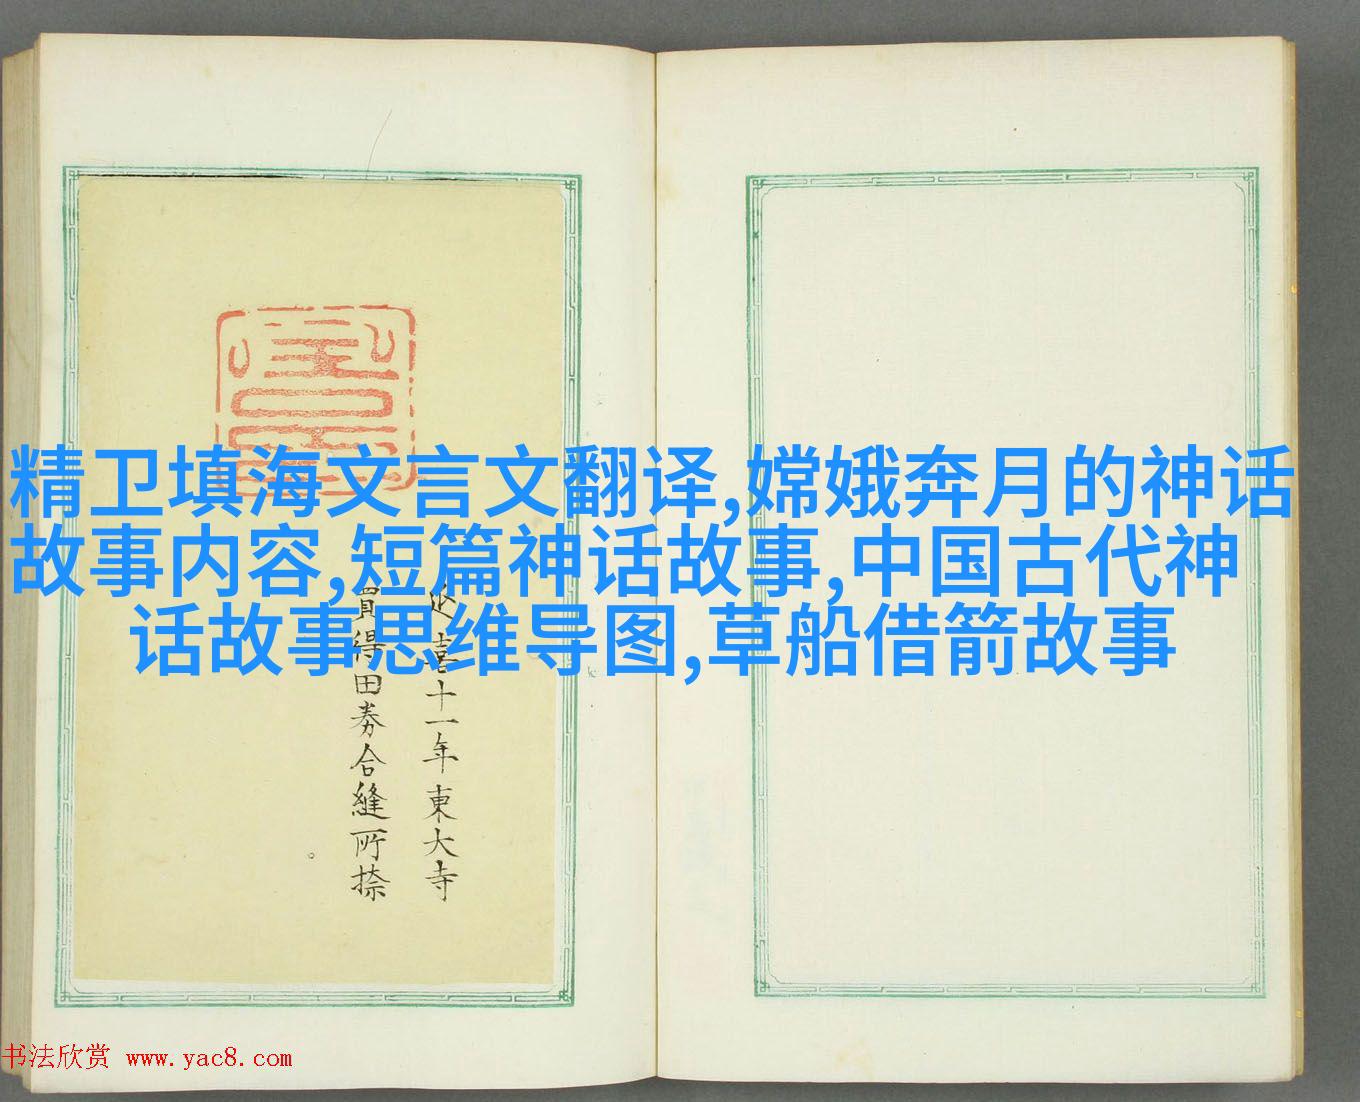 精卫填海文言文翻译,嫦娥奔月的神话
故事内容,短篇神话故事,中国古代神
话故事思维导图,草船借箭故事
延喜十一年東大寺
買得田券合縫所捺
书法欣赏 www.yac8.com